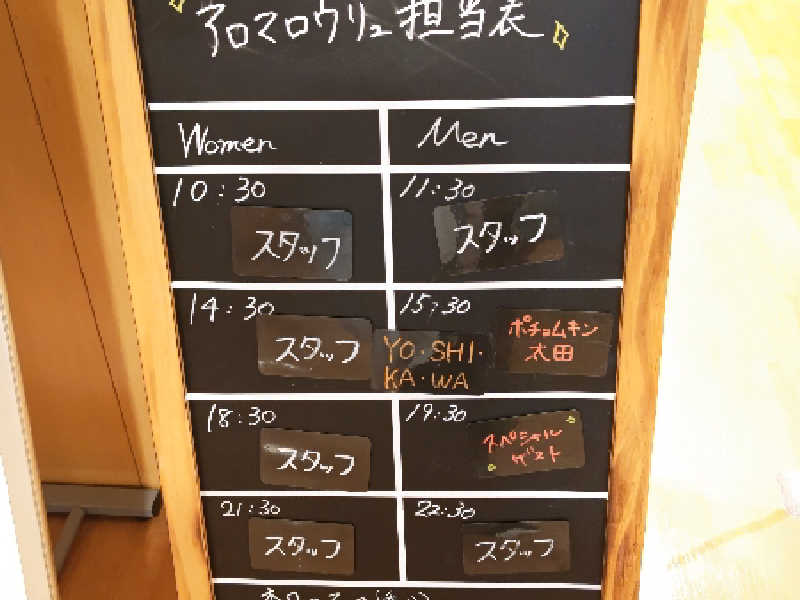 アロマロウリュ担当表
Women Men
10:30 11:30
スタッフ スタッフ
14:30 15:30
スタッフ YO・SHI・KA・WA ポチョムキン太田
18:30 19:30
スタッフ スペシャルゲスト
21:30 22:30
スタッフ スタッフ